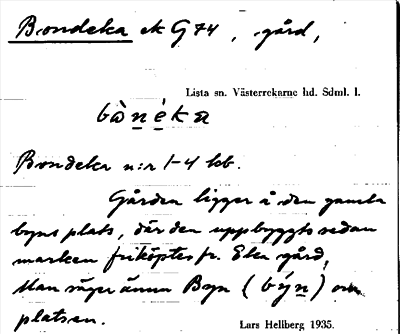 Bondeka ek G 74, gård,
Lista sn. Västerrekarne hd. Sdml. l.
bὼnèka
Bondeka n:r 1-4 kb.
Gården ligger å den gamla
byns plats, där den uppbyggts sedan
marken friköptes fr. Eka gård,
Man säger ännu Byn (býn) om
platsen.
Lars Hellberg 1935.